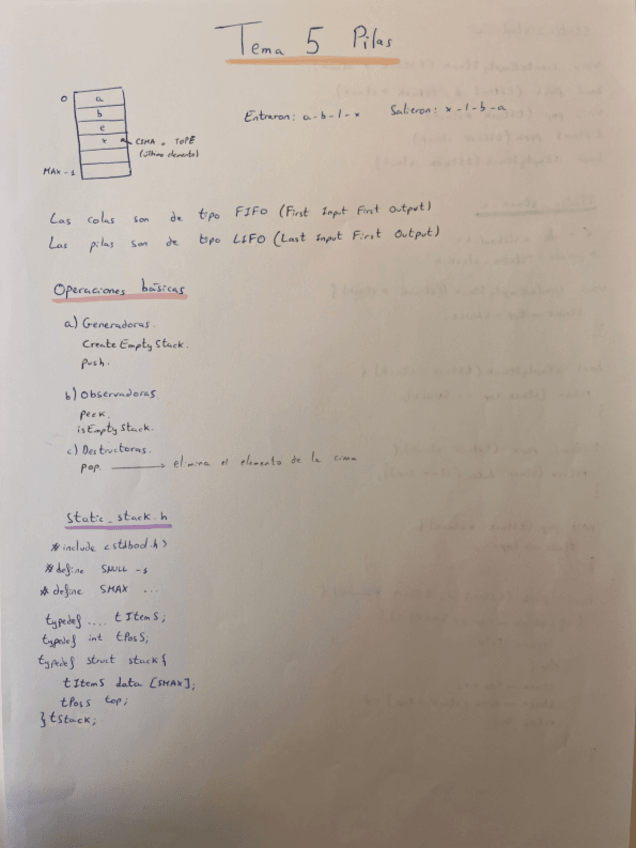 Tema 5 Pilas
0
a
b
c
x
CIMA o TOPE
(último elemento)
MAX-1
Entraron: a-b-l-x
Salieron: x-l-b-a
Las colas son de tipo FIFO (First Input First Output)
Las pilas son de tipo LIFO (Last Input First Output)
Operaciones básicas
a) Generadoras.
CreateEmptyStack.
Push.
b) Observadoras
peek.
isEmptyStack.
c) Destructoras.
pop. elimina el elemento de la cima
Static_stack.h
#include <stdbool.h>
#define SNULL -1
#define SMAX ...
typedef .... tItemS;
typedef int tPosS;
typedef struct stack{
tItemS data [SMAX];
tPosS top;
}tStack;